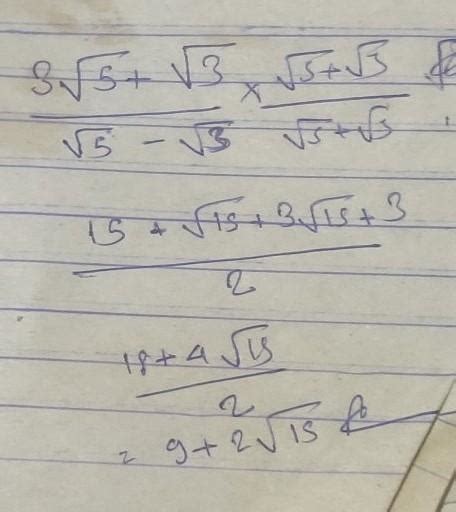 3√5 + √3 / √5 − √3 × √5+√3 / √5+√3
15 + √15 + 3√15 + 3 / 2
18 + 4√15 / 2
= 9 + 2√15